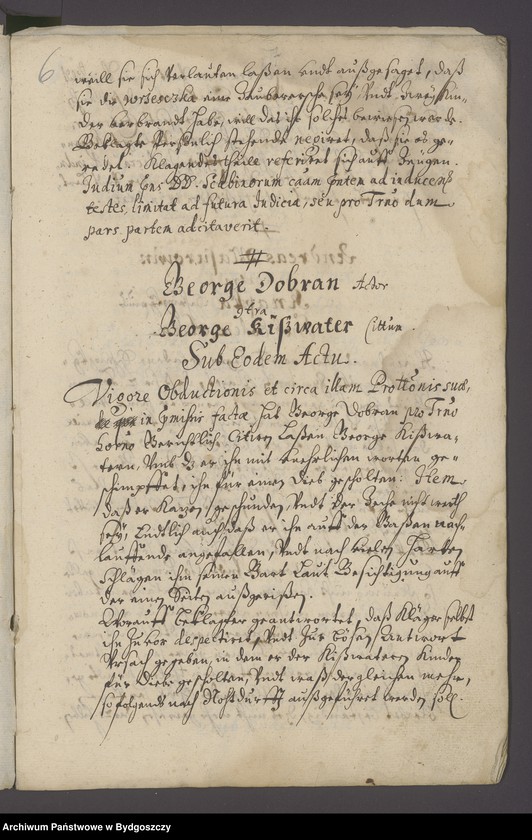 6
weill sie sich verlauten laßen undt außgesaget, daß
sie die wrseczka eine Zauberersche sey, Undt zwey Kin-
der verbrandt habe, will daß ihr solches bewiesen werde.
Beklagte Persönlich stehende negiret, daß sie es ge-
redet. Klagendes theile referiret sich auff Zeugen.
Judium DD. Scabinorum caam ad inducend
testes limitat ad futura Judicia, seu pro Trno dum
pars partem adcitaverit.
George Dobran Actor
Ctra
George Kißwater Cittum.
Sub Eodem Actu.
Vigore Obductionis et circa illam Prottonis suae,
in factae hat George Dobran pro Trno
horno Gerichtlich Citiren Laßen George Kißwa-
tern, Umb daß er ihn mit unehrlichen worten ge-
schimpffet, ihn für einen Dieb gescholten: Item
daß er Katzen geschunden, Undt der Zeche nicht werth
sey, Endtlich auch daß er ihn auff der Gaßen nach-
lauffende angefallen, Undt nach vielen harten
Schlägen ihm seinen Bart Laut Besichtigung auff
der einen Seiten außgerißen.
Worauff Beklagter geantwortet, daß Kläger selbst
ihn zuvor despectiret, Undt zur bösen Antwort
Ursach gegeben, in dem er der Kißwatern Kinder
für Diebe gescholten, Undt waß dergleichen mehr,
so folgends nach Nohtdurfft außgeführet werden soll.
Archiwum Państwowe w Bydgoszczy